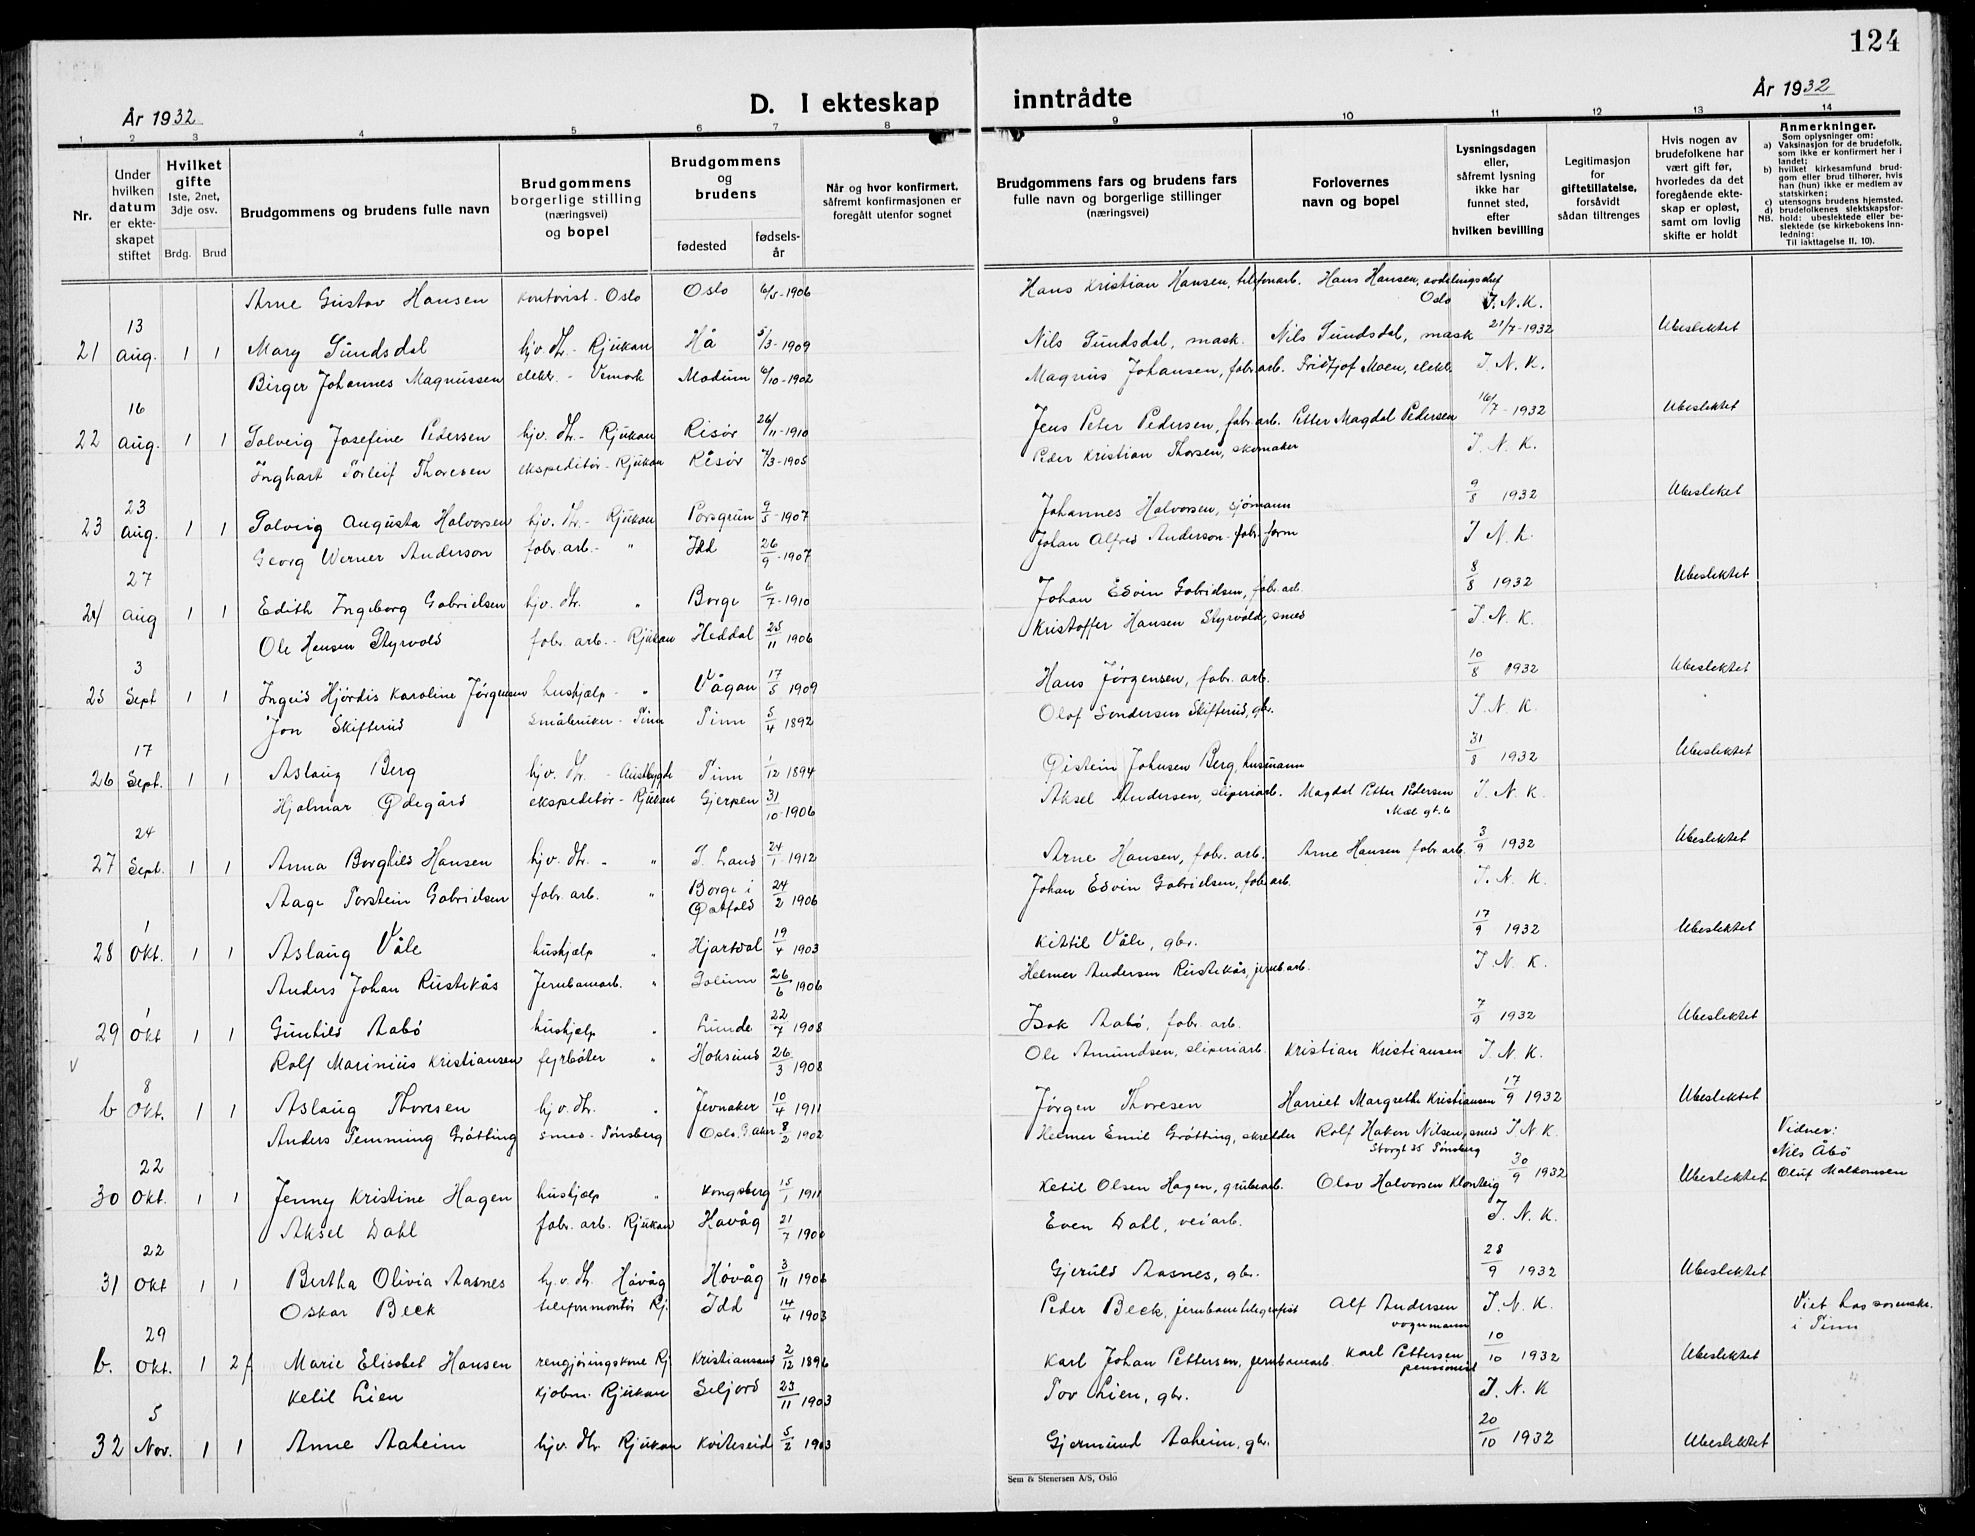 124
År 1932
D. I ekteskap inntrådte
År 1932
1 2 3 4 5 6 7 8 9 10 11 12 13 14
Nr.
Under hvilken datum er ekteskapet stiftet
Hvilket gifte
1ste, 2net, 3dje osv.
Brdg. Brud
Brudgommens og brudens fulle navn
Brudgommens borgerlige stilling (næringsvei) og bopel
Brudgommens og brudens
fødested
fødselsår
Når og hvor konfirmert, såfremt konfirmasjonen er foregått utenfor sognet
Brudgommens fars og brudens fars fulle navn og borgerlige stillinger (næringsvei)
Forlovernes navn og bopel
Lysningsdagen eller, såfremt lysning ikke har funnet sted, efter hvilken bevilling
Legitimasjon for giftetillatelse, forsåvidt sådan tiltrenges
Hvis nogen av brudefolkene har vært gift før, hvorledes da det foregående ekteskap er opløst, samt om lovlig skifte er holdt
Anmerkninger.
Som oplysninger om:
a) Vaksinasjon for de brudefolk, som ikke er konfirmert her i landet;
b) hvilket kirkesamfund brudgom eller brud tilhører, hvis han (hun) ikke er medlem av statskirken;
c) utensogns brudens hjemsted.
d) brudefolkenes slektskapsforhold: ubeslektede eller beslektede (se kirkebokens innledning:
NB.
Til iakttagelse II, 10).
Arne Gustav Hansen kontorist - Oslo Oslo 6/5-1906 Hans Kristian Hansen, telefonarb. Hans Hansen, avdelingschef Oslo I. N. K.
21 13 Aug. 1 1 Mary Sundsdal hjv. dtr. - Rjukan Hå 5/3-1909 Nils Sundsdal, mask. Nils Sundsdal, mask 21/7-1932 Ubeslektet
Birger Johannes Magnussen elektr. - Vemork Modum 6/10-1902 Magnus Johansen, fabr. arb. Fridtjof Moen, elektr. I. N. K.
22 16 Aug. 1 1 Solveig Josefine Pedersen hjv. dtr. - Rjukan Risør 26/11-1910 Jens Peter Pedersen, fabr. arb. Petter Magdal Pedersen 16/7-1932 Ubeslektet
Inghart Torleif Thoresen ekspeditør - Rjukan Risør 7/3-1905 Peder Kristian Thorsen, skomaker I. N. K.
23 23 Aug. 1 1 Solveig Augusta Halvorsen hjv. dtr. - Rjukan Porsgrun 9/5-1907 Johannes Halvorsen, sjømann 9/8 1932 Ubesleket
Georg Werner Anderson fabr. arb. - " Idd 26/9-1907 Johan Alfred Anderson - fabr. form I. N. K.
24 27 Aug 1 1 Edith Ingeborg Gabrielsen hjv. dtr. " Borge 6/7-1910 Johan Edvin Gabrielsen, fabr. arb. 8/8 1932 Ubeslektet
Ole Hansen Styrvold fabr. arb. - Rjukan Heddal 25/11 1906 Kristoffer Hansen Styrvold, smed I. N. K.
25 3 Sept 1 1 Ingrid Hjördis Karoline Jörgensen hushjælp - " Vågan 17/5 1909 Hans Jörgensen, fabr. arb. 10/8 1932 Ubeslektet
Jon Skifterud småbruker - Tinn Tinn 5/4 1892 Olaf Sondersen Skifterud, gbr. I. N. K.
26 17 Sept. 1 1 Aslaug Berg hjv. dtr. - Austbygde Tinn 1/12 1894 Øistein Johnsen Berg, husmann 31/8 1932 Ubeslektet
Hjalmar Ødegård ekspeditør - Rjukan Gjerpen 31/10-1906 Aksel Andersen, sliperiarb. Magdal Petter Pedersen Mæl gt. 6 I. N. K.
27 24 Sept. 1 1 Anna Borghild Hansen hjv. dtr. - " S. Land 24/1 1912 Arne Hansen, fabr. arb. Arne Hansen fabr. arb. 3/9 1932 Ubeslektet
Aage Torstein Gabrielsen fabr. arb. " Borge i Østfold 24/2 1906 Johan Edvin Gabrielsen, fabr. arb. I. N. K.
28 1 Okt. 1 1 Aslaug Våle hushjælp " Hjartdal 19/4 1903 Kittil Våle, gbr. 17/9 1932 Ubeslektet
Anders Johan Rustekås Jernbanearb. " Solum 26/6 1906 Helmer Andersen Rustekås, jernb. arb. I. N. K.
29 1 Okt 1 1 Gunhild Aabö hushjælp " Lunde 22/7 1908 Isak Aabö, fabr. arb. 7/9 1932 Ubeslektet
v Rolf Marinius Kristiansen fyrböter " Hoksund 26/3 1908 Ole Amundsen, sliperiarb. Kristian Kristiansen I. N. K.
b 8 Okt. 1 1 Aslaug Thoresen hjv. dtr. " Jevnaker 10/4 1911 Jörgen Thoresen Harriet Margrethe Kristiansen 17/9 1932 Ubeslektet
Anders Temming Grötting smed - Tönsberg Oslo, G. Aker 8/2 1902 Helmer Emil Grötting, skredder Rolf Hakon Nilsen, smed Storgt 35 Tønsberg I. N. K. Vidner: Nils Åbö
30 22 Okt. 1 1 Jenny Kristine Hagen hushjælp " Kongsberg 15/1 1911 Ketil Olsen Hagen, grubearb. Olav Halvorsen Klonteig 30/9 1932 Ubeslektet Oluf Malkomsen
Aksel Dahl fabr. arb. Rjukan Havåg 21/7 1900 Even Dahl, veiarb. I. N. K.
31 22 Okt 1 1 Bertha Olivia Aasnes hj. v. dtr. Hövåg Hövåg 3/11 1906 Gjeruld Aasnes, gbr. 28/9 1932 Ubeslektet
Oskar Beck telefonmontör Rj. Idd 14/4 1903 Peder Beck, jernbanetelegrafist Alf Andersen vognmann I. N. K. Viet hos sorenskr. i Tinn
b. 29 Okt. 1 2 Marie Elisabet Hansen rengjöringskone Rj Kristiansand 2/12 1896 Karl Johan Pettersen, jernbanearb. Karl Pettersen pensionist 10/10 1932 Ubeslektet
Ketil Lien kjøbm. Rjukan Seljord 23/11 1903 Tov Lien, gbr. I. N. K
32 5 Nov. 1 1 Anne Aaheim hjv. dtr. Rjukan Kviteseid 5/2 1903 Gjermund Aaheim, gbr. 20/10 1932 Ubeslektet
Sem & Stenersen A/S, Oslo